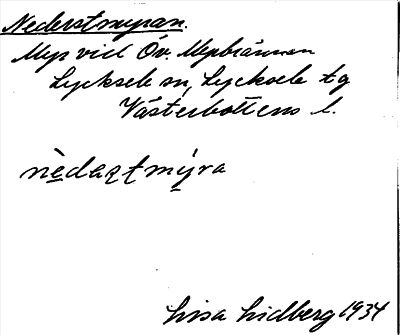 Nederstmyran.
Myr vid Öv. Myrbrännan
Lycksele sn, Lycksele tg
Västerbottens l.
nèdaʂtmýra
Lisa Lidberg 1934